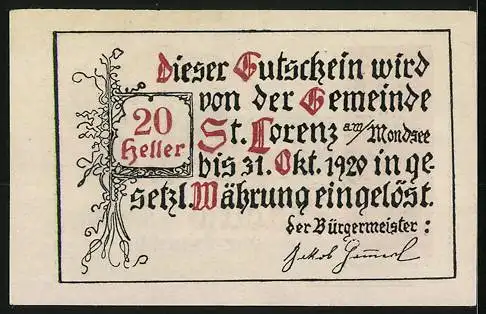 Dieser Gutschein wird
von der Gemeinde
20
Heller
St. Lorenz am/Mondsee
bis 31. Okt. 1920 in ge-
setzl. Währung eingelöst.
der Bürgermeister:
Jakob